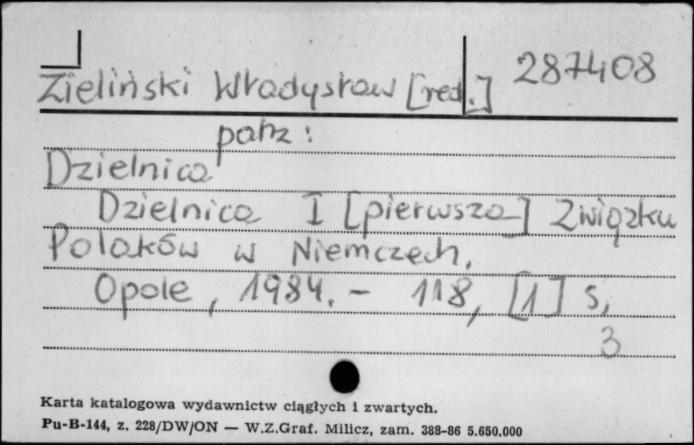 Zieliński Władysław [red.] 287408
patrz:
Dzielnica
Dzielnica I [pierwsza] Związku
Polaków w Niemczech.
Opole, 1984. - 118, [1] s,
3
Karta katalogowa wydawnictw ciągłych i zwartych.
Pu-B-144, z. 228/DW/ON — W.Z.Graf. Milicz, zam. 388-86 5.650.000